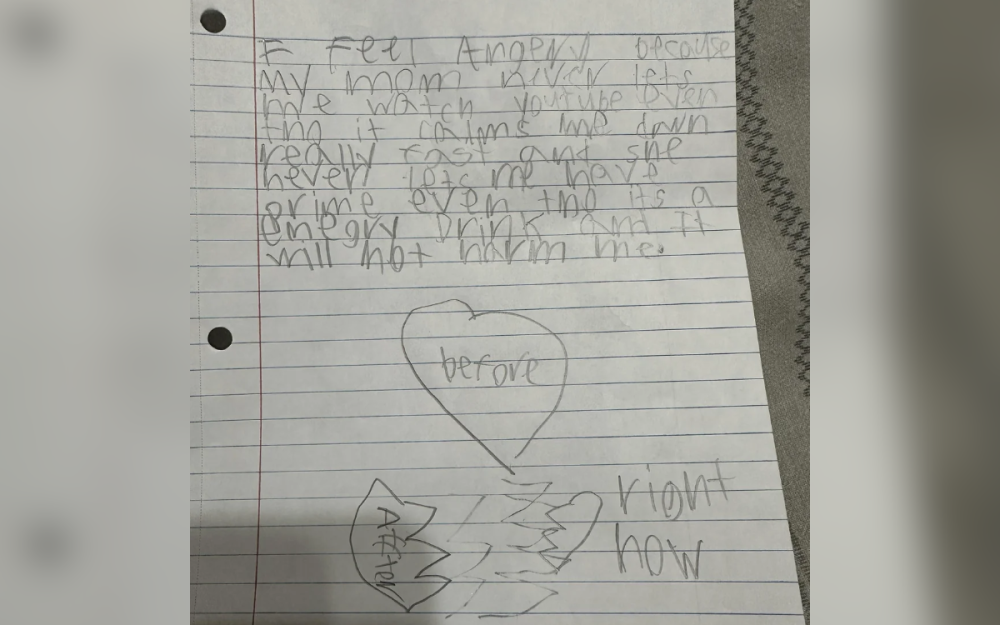 I FEEl Angery because
My mom never lets
me watch youtube even
tho it calms me down
really fast and she
never lets me have
prime even tho its a
enegry Drink and It
will not harm me.
before
Affter
right
now